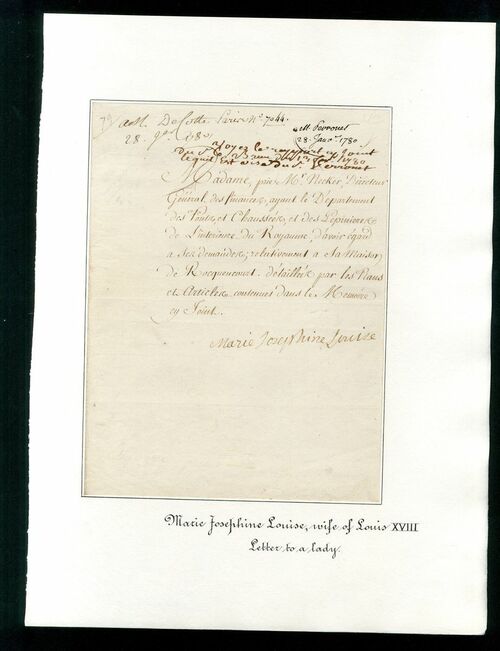 A M. De Cotte
28. 1780
N.º 7044.
M. Perronet
28 Janv.r 1780
Voyez le rapport cy joint
du S.r 1780
lequel est Du S. Perronet
Madame, prie M.r Necker, Directeur
Général des finances, ayant le Département
des Ponts et Chaussées, et des Pepinieres
de L'interieure du Royaume, d'avoir égard
a Ses demandes, relativement a Sa Maison
de Rocquencourt. détaillés par les Plans
et Articles contenues dans le Memoire
cy Joint.
Marie Josephine Louise
Marie Josephine Louise, wife of Louis XVIII
Letter to a lady.